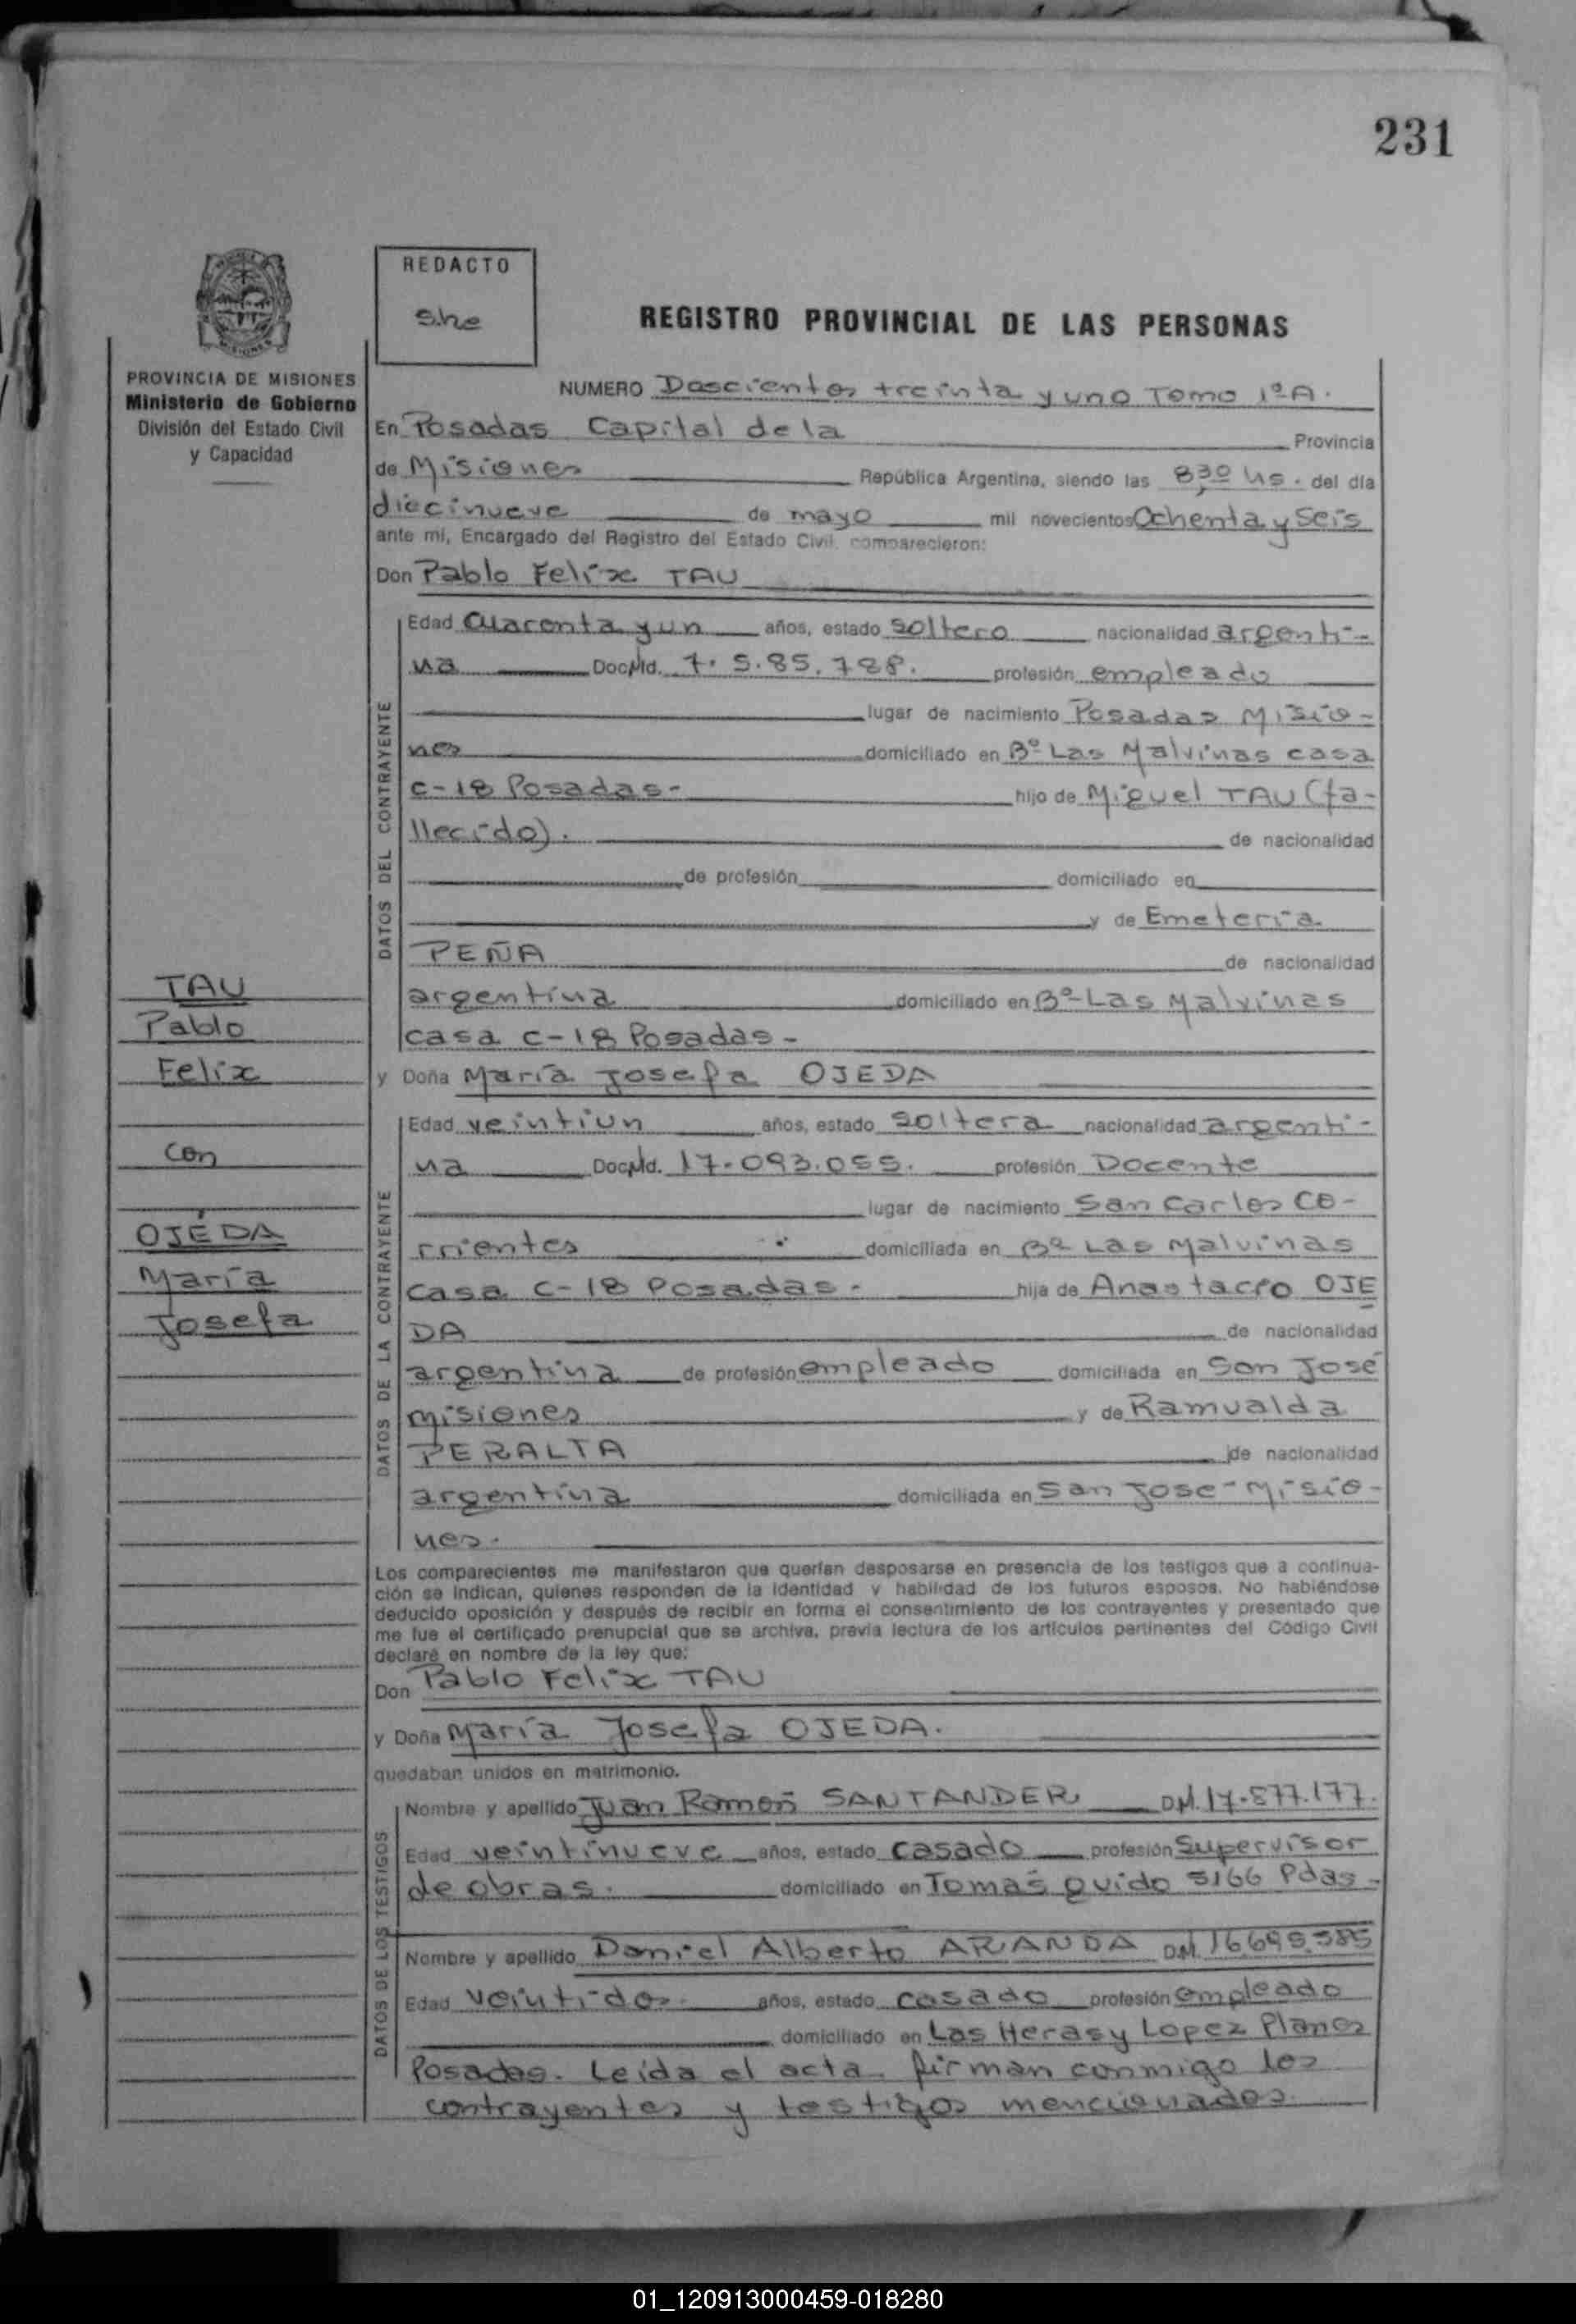 231
REDACTO
she
REGISTRO PROVINCIAL DE LAS PERSONAS
MISIONES
PROVINCIA DE MISIONES
Ministerio de Gobierno
División del Estado Civil
y Capacidad
NUMERO Doscientos treinta y uno Tomo 1º A.
En Posadas Capital de la Provincia
de Misiones República Argentina, siendo las 8,30 hs. del día
diecinueve de mayo mil novecientos Ochenta y Seis
ante mí, Encargado del Registro del Estado Civil, comparecieron:
Don Pablo Felix TAU
DATOS DEL CONTRAYENTE
Edad Cuarenta y un años, estado soltero nacionalidad argenti-
na Doc. Nd. 7.585.788. profesión empleado
lugar de nacimiento Posadas Misio-
nes domiciliado en Bº Las Malvinas casa
C-18 Posadas- hijo de Miguel TAU (fa-
llecido). de nacionalidad
de profesión domiciliado en
y de Emeteria
PEÑA de nacionalidad
argentina domiciliado en Bº Las Malvinas
casa C-18 Posadas-
y Doña María Josefa OJEDA
DATOS DE LA CONTRAYENTE
Edad veintiun años, estado soltera nacionalidad argenti-
na Doc. Nd. 17.093.055. profesión Docente
lugar de nacimiento San Carlos Co-
rrientes domiciliada en Bº Las Malvinas
casa C-18 Posadas- hija de Anastacio OJE
DA de nacionalidad
argentina de profesión empleado domiciliada en San José
Misiones y de Ramualda
PERALTA de nacionalidad
argentina domiciliada en San Jose-Misio-
nes.
TAU
Pablo
Felix
con
OJEDA
María
Josefa
Los comparecientes me manifestaron que querían desposarse en presencia de los testigos que a continua-
ción se indican, quienes responden de la identidad y habilidad de los futuros esposos. No habiéndose
deducido oposición y después de recibir en forma el consentimiento de los contrayentes y presentado que
me fue el certificado prenupcial que se archiva, previa lectura de los artículos pertinentes del Código Civil
declaré en nombre de la ley que:
Don Pablo Felix TAU
y Doña María Josefa OJEDA.
quedaban unidos en matrimonio.
DATOS DE LOS TESTIGOS
Nombre y apellido Juan Ramón SANTANDER D.M. 14.577.177.
Edad veintinueve años, estado casado profesión Supervisor
de obras. domiciliado en Tomás Guido 5166 Pdas-
Nombre y apellido Daniel Alberto ARANDA D.M. 16.695.585
Edad veintidos años, estado casado profesión empleado
domiciliado en Las Heras y Lopez Planes
Posadas. Leída el acta, firman conmigo los
contrayentes y testigos mencionados.
01_120913000459-018280